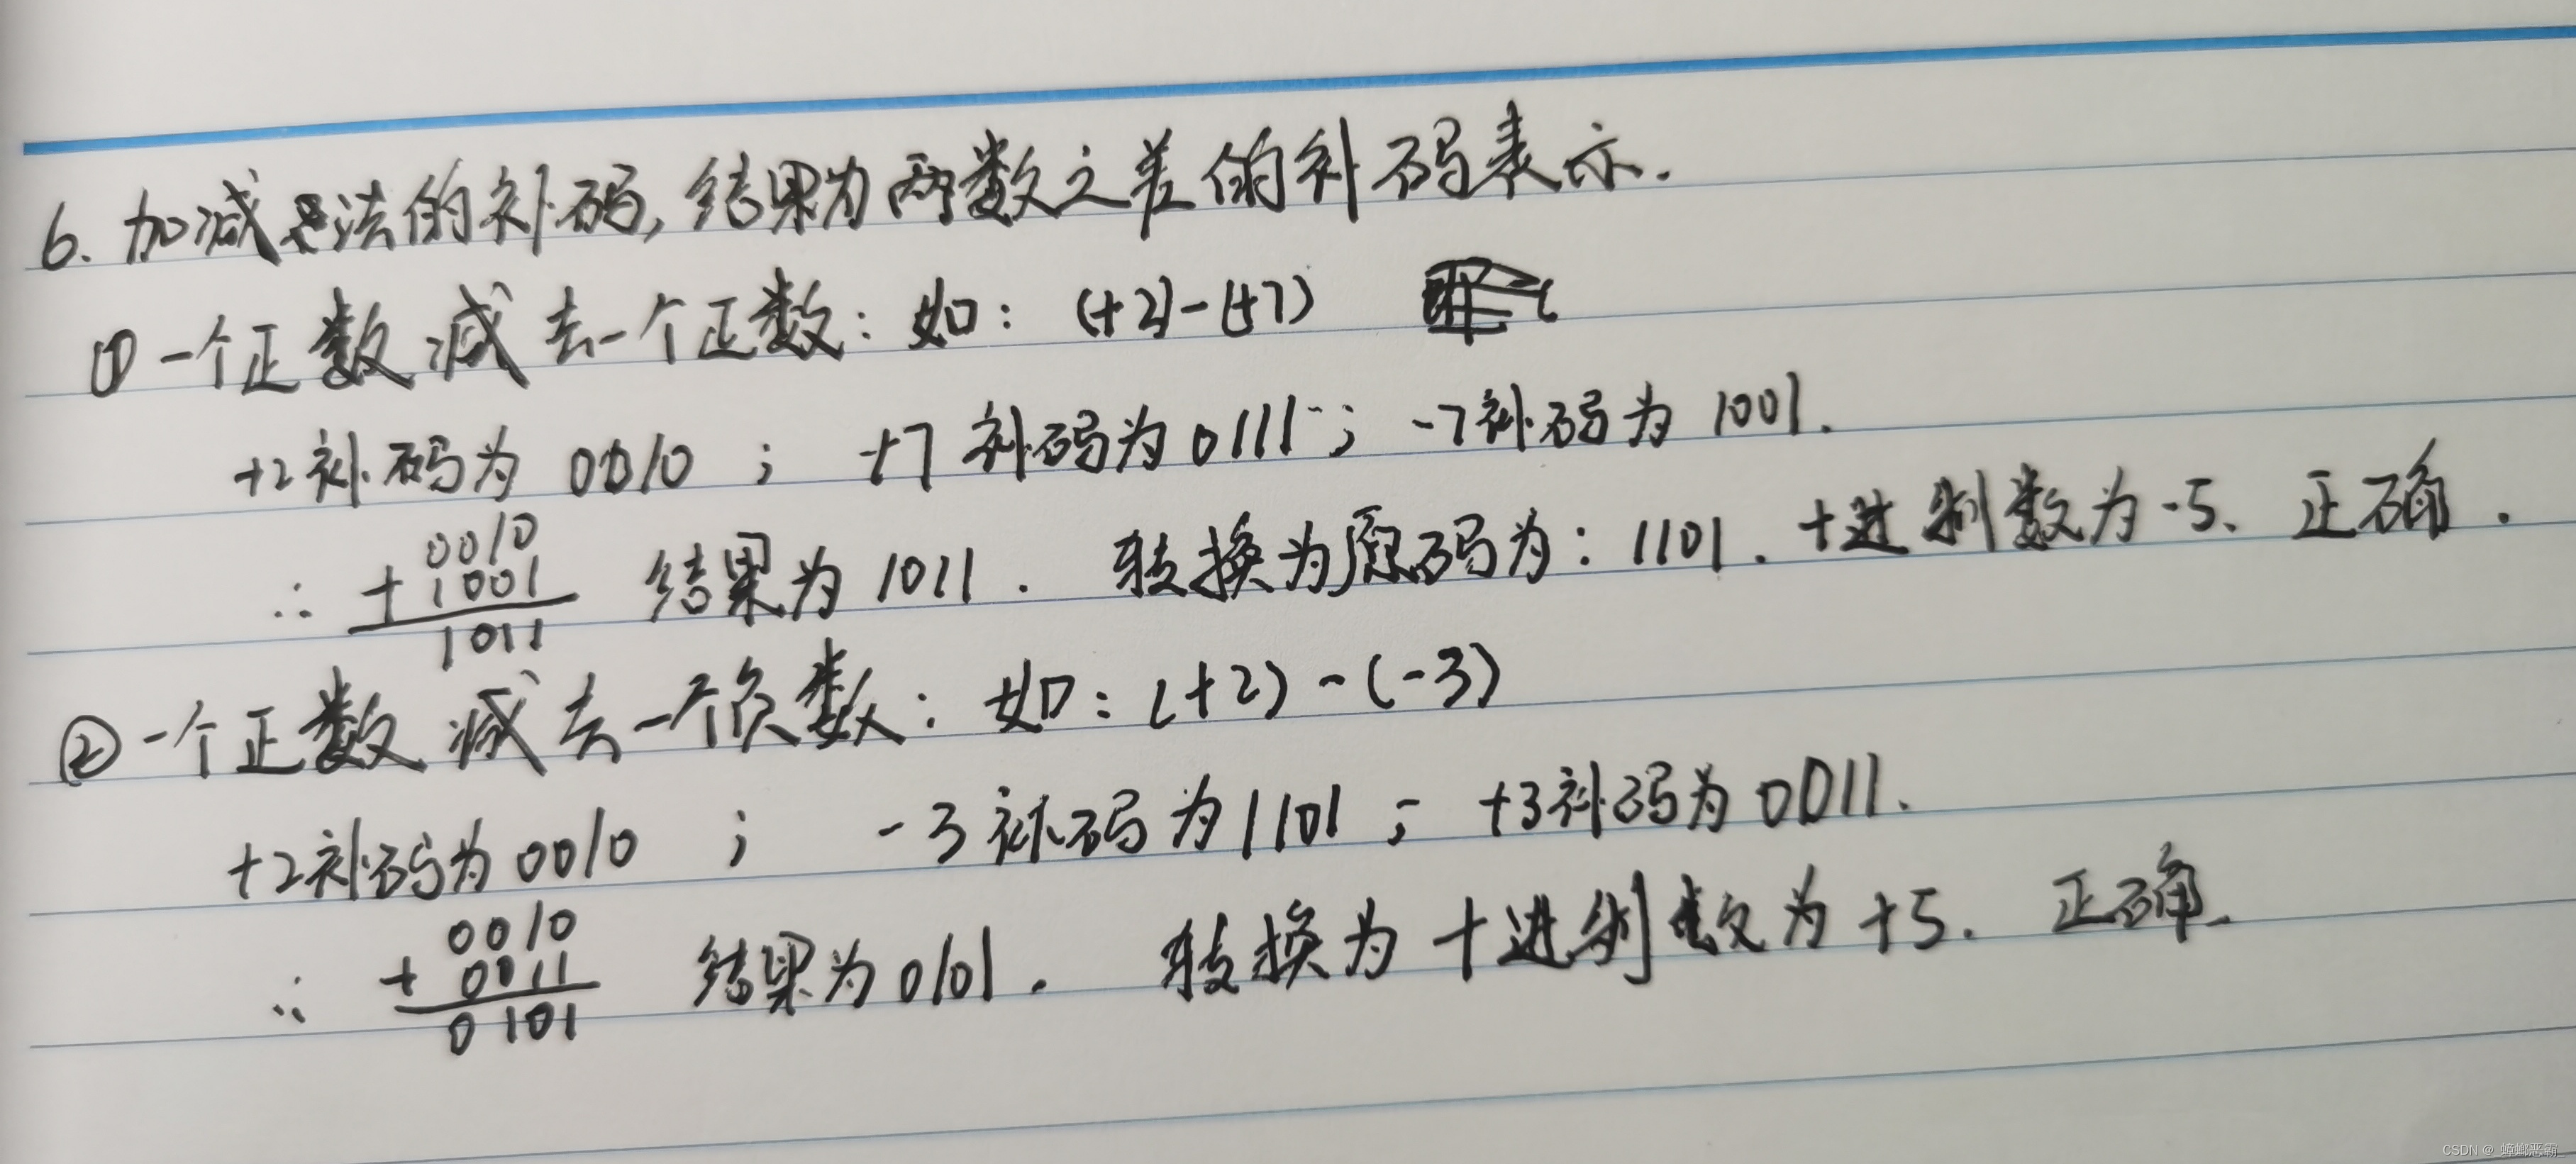 6. 加减法的补码,结果为两数之差的补码表示.
① 一个正数减去一个正数: 如: (+2)-(+7)
+2补码为 0010 ; +7补码为0111 ; -7补码为 1001.
∴ 0010
+ 1001
1011
结果为 1011 . 转换为原码为: 1101 . 十进制数为-5、正确 .
② 一个正数减去一个负数: 如: (+2) - (-3)
+2补码为0010 ; -3补码为1101 ; +3补码为0011.
∴ 0010
+ 0011
0101
结果为0101 . 转换为十进制数为+5. 正确.
CSDN @_蟑螂恶霸_